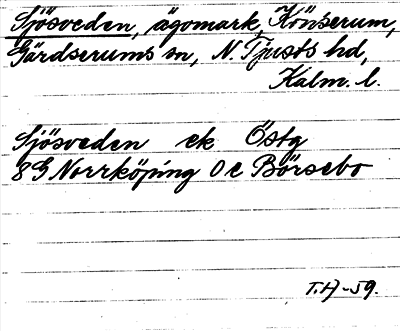 Sjösveden, ägomark, Könserum,
Gärdserums sn, N. Tjusts hd,
Kalm. l.
Sjösveden ek Östg
8G Norrköping 0e Börsebo
T.H-59.